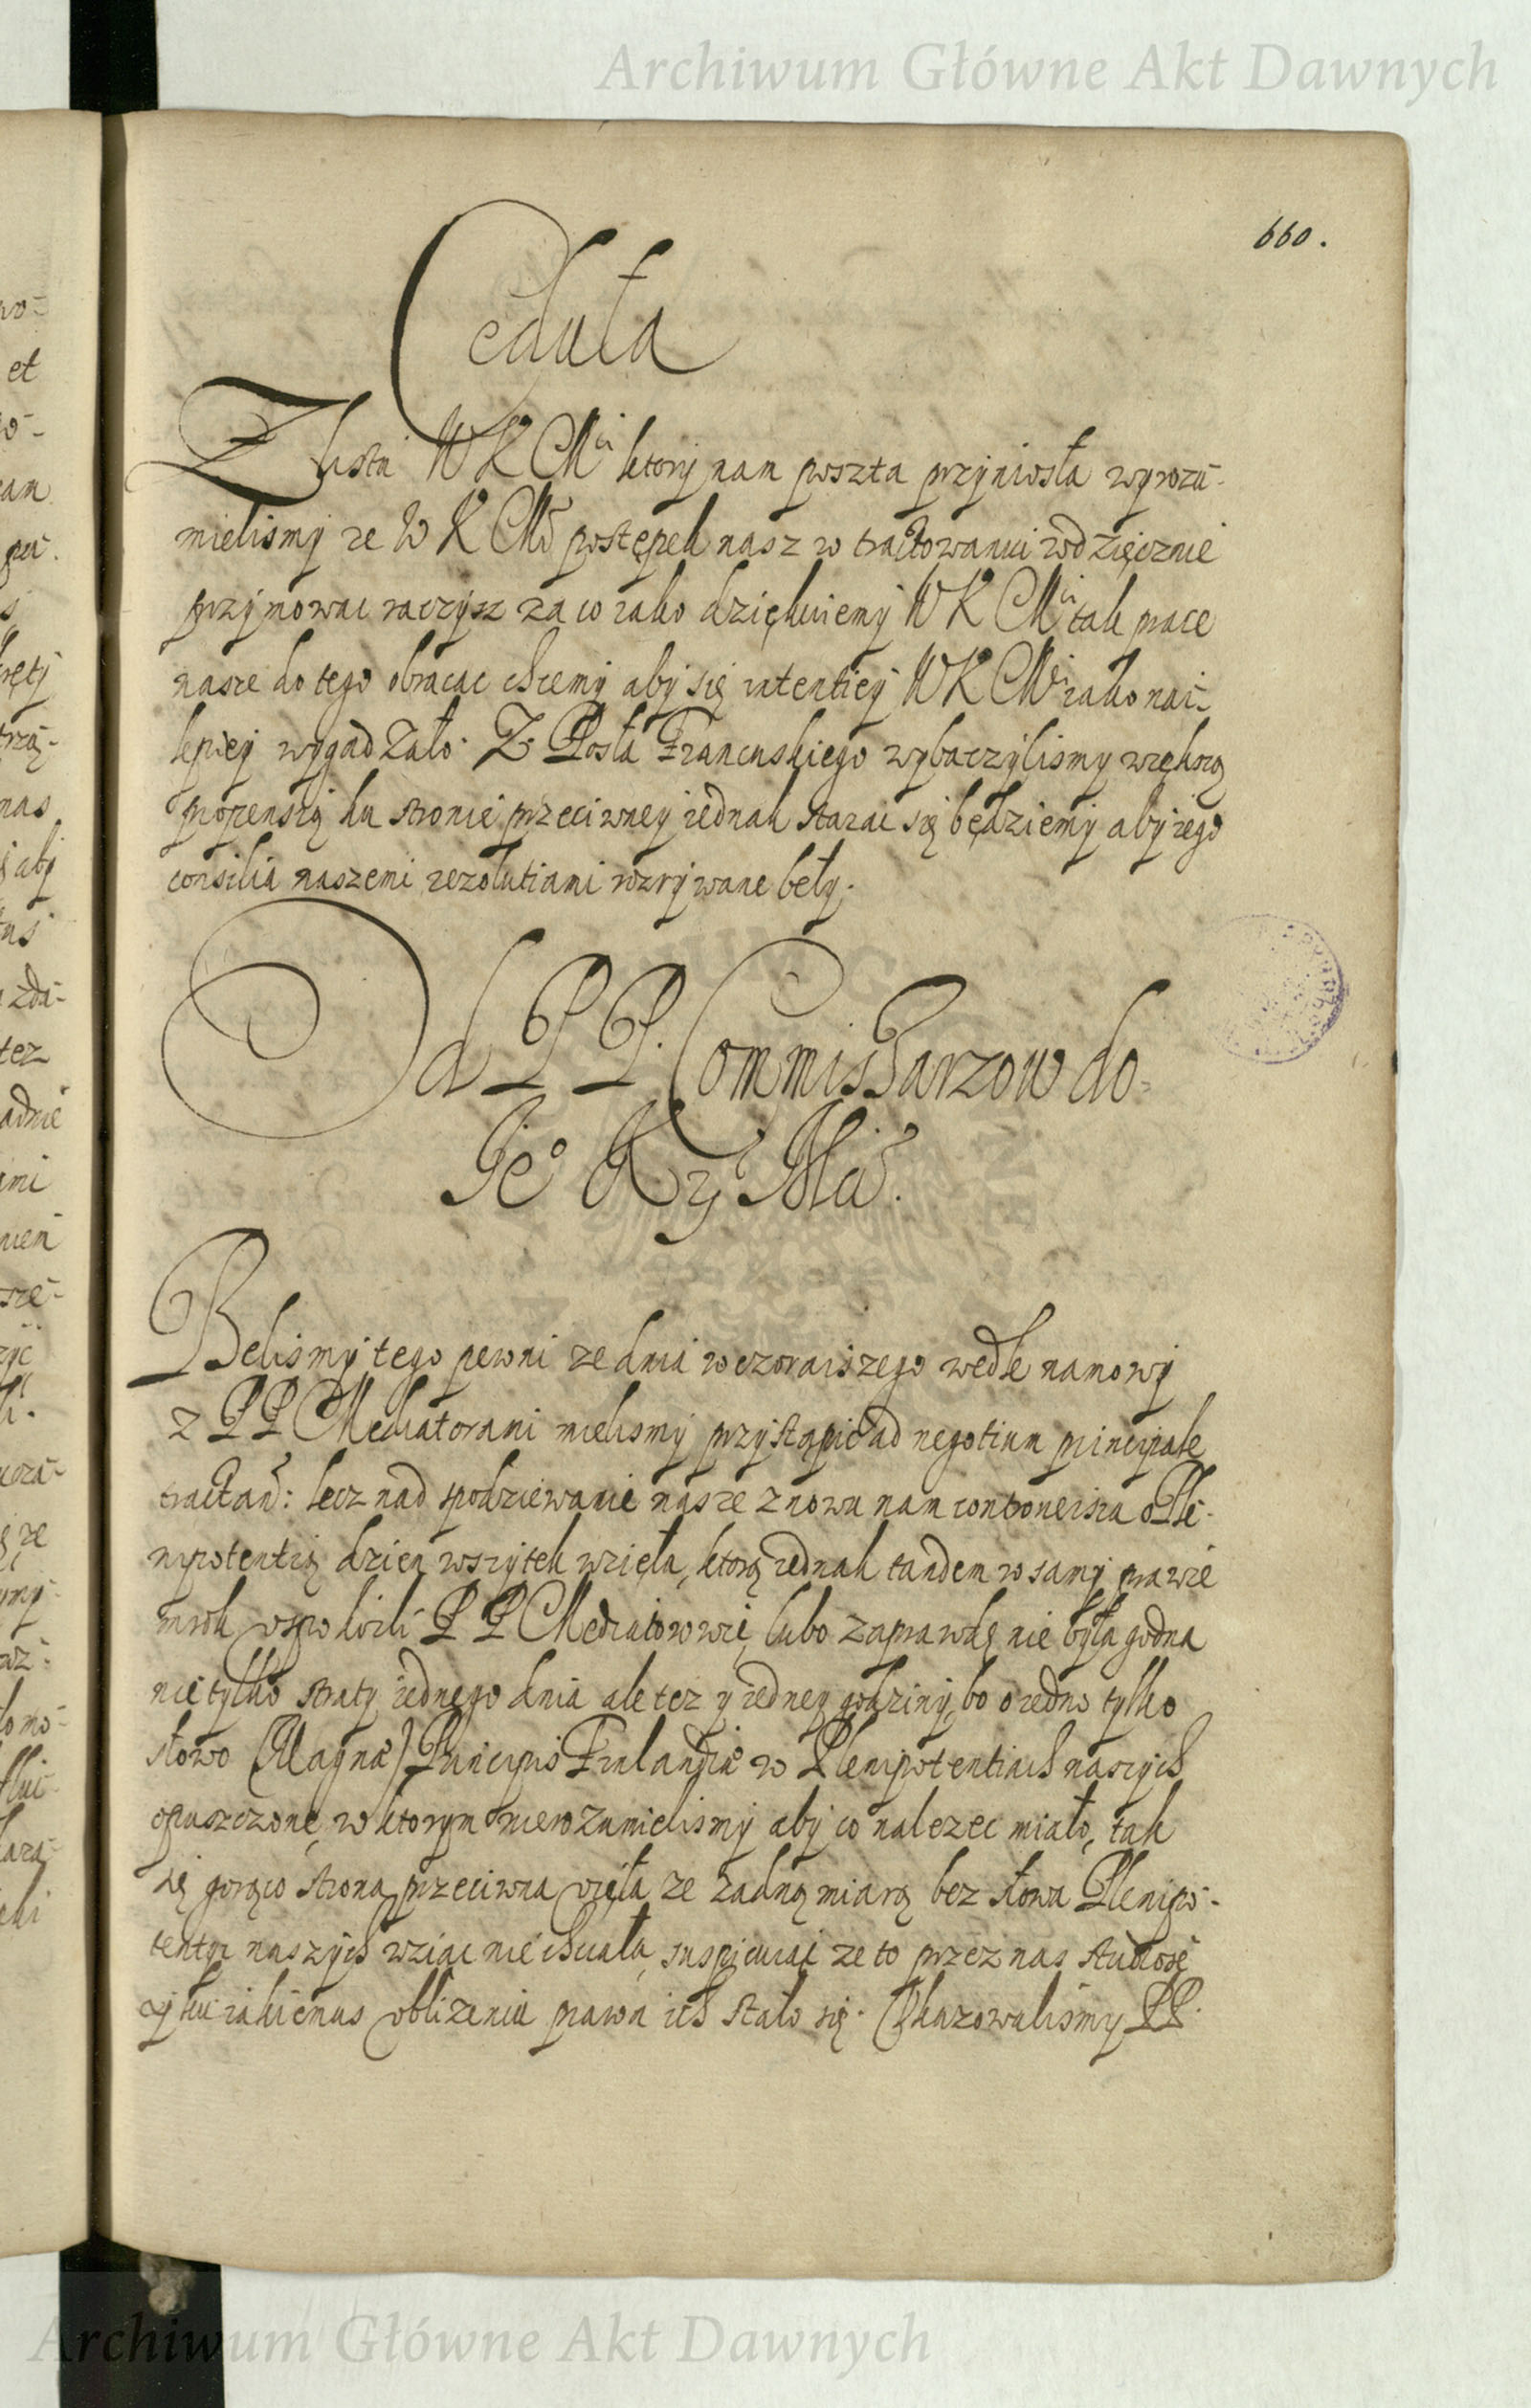 Archiwum Główne Akt Dawnych
660.
Ceduła
Z listu W K Mci ktory nam poszta przyniosła wyrozu-
mielismy ze W K Mć postępek nasz w tractowaniu wdzięcznie
przymowac raczysz za co iako dziękuiemy W K Mci tak prace
nasze do tego obracac chcemy aby się intentiey W K Mci iako nai-
lepiey wygadzało. Z Posła Francuskiego wybaczylismy większą
propensią ku stronie przeciwney iednak starac się będziemy aby iego
consilia naszemi rezolutiami rozrywane beły.
Od P P. Commissarzow do
Je° K. y Mci.
Belismy tego pewni ze dnia wczoraiszego wedle namowy
z P P Mediatorami mielismy przystąpic ad negotium principale
tractan: lecz nad spodziewanie nasze znowu nam controversia o Ple-
nipotentią dzien wszytek wzięła, ktorą iednak tandem w samy prawie
mrok uspokoili P P Mediatorowie, lubo zaprawdę nie była godna
nie tylko straty iednego dnia ale tez y iedney godziny, bo o iedno tylko
słowo (Magnæ) Principis Finlandiæ w Plenipotentiach naszych
opuszczone, w ktorym nierozumielismy aby co nalezec miało, tak
się gorąco strona przeciwna ujęła ze żadną miarą bez słowa Plenipo-
tentyi naszych wziac nie chciała, suspicuiąc ze to przez nas studiose
czy ku iakiemus ublizeniu prawa ich stało się. Ukazowalismy PP.
Archiwum Główne Akt Dawnych